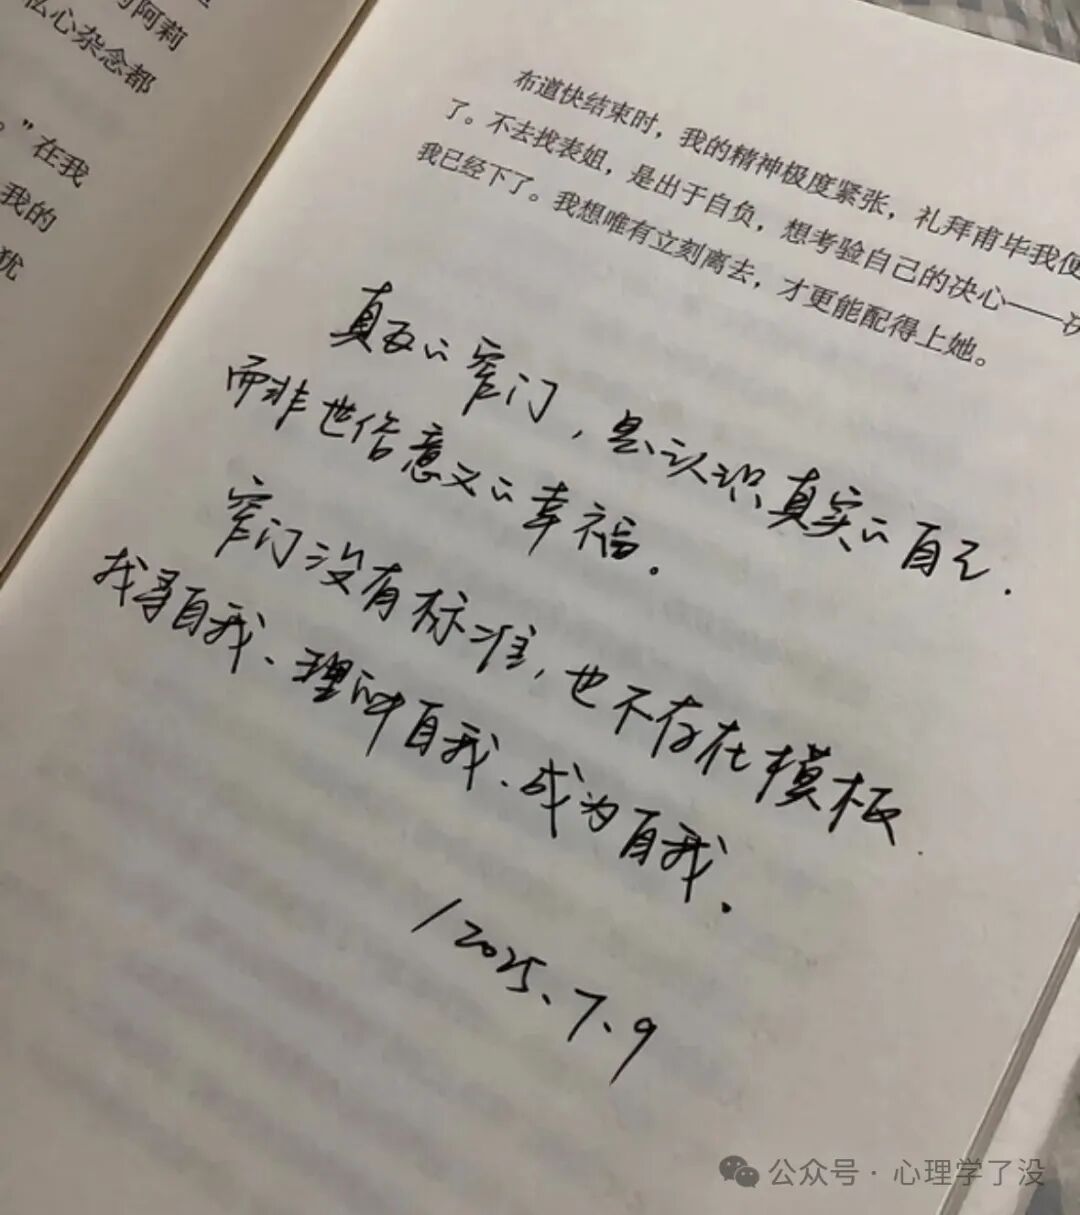 阿莉
私心杂念都
。”在我
我的
犹
布道快结束时，我的精神极度紧张，礼拜甫毕我便
了。不去找表姐，是出于自负，想考验自己的决心——决
我已经下了。我想唯有立刻离去，才更能配得上她。
真正的窄门，是认识真实的自己.
而非世俗意义的幸福。
窄门没有标准，也不存在模板.
找寻自我、理解自我、成为自我.
/2025.7.9
公众号·心理学了没